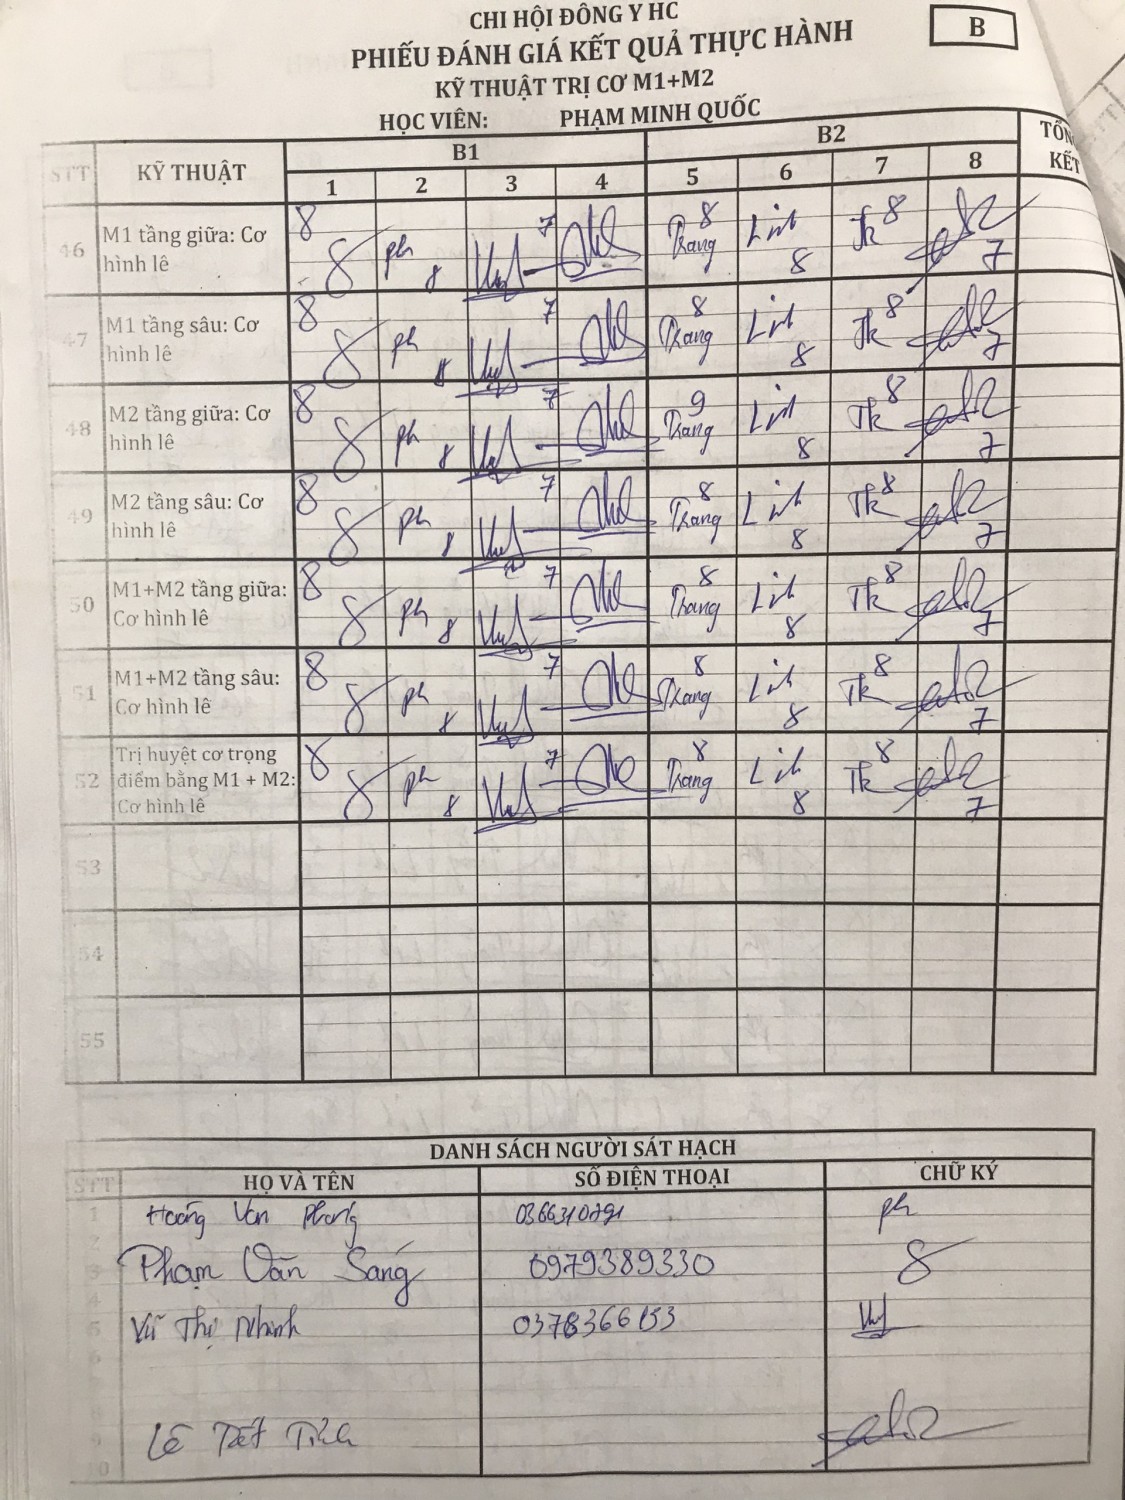 CHI HỘI ĐÔNG Y HC
B
PHIẾU ĐÁNH GIÁ KẾT QUẢ THỰC HÀNH
KỸ THUẬT TRỊ CƠ M1+M2
HỌC VIÊN: PHẠM MINH QUỐC
STT KỸ THUẬT B1 B2 TỔNG KẾT
1 2 3 4 5 6 7 8
46 M1 tầng giữa: Cơ hình lê 8 8 ph 8 7 8 Trang Linh 8 Tk 8 7
47 M1 tầng sâu: Cơ hình lê 8 8 ph 8 7 8 Trang Linh 8 Tk 8 7
48 M2 tầng giữa: Cơ hình lê 8 8 ph 8 7 9 Trang Linh 8 Tk 8 7
49 M2 tầng sâu: Cơ hình lê 8 8 ph 8 7 8 Trang Linh 8 Tk 8 7
50 M1+M2 tầng giữa: Cơ hình lê 8 8 ph 8 7 8 Trang Linh 8 Tk 8 7
51 M1+M2 tầng sâu: Cơ hình lê 8 8 ph 8 7 8 Trang Linh 8 Tk 8 7
52 Trị huyệt cơ trọng điểm bằng M1 + M2: Cơ hình lê 8 8 ph 8 7 8 Trang Linh 8 Tk 8 7
53
54
55
DANH SÁCH NGƯỜI SÁT HẠCH
STT HỌ VÀ TÊN SỐ ĐIỆN THOẠI CHỮ KÝ
1 Hoàng Văn Phong ph
2
3 Phạm Văn Sáng 0979389330 8
4
5 Vũ Thị 0378366153
6
8
9 Lê Tiến
10